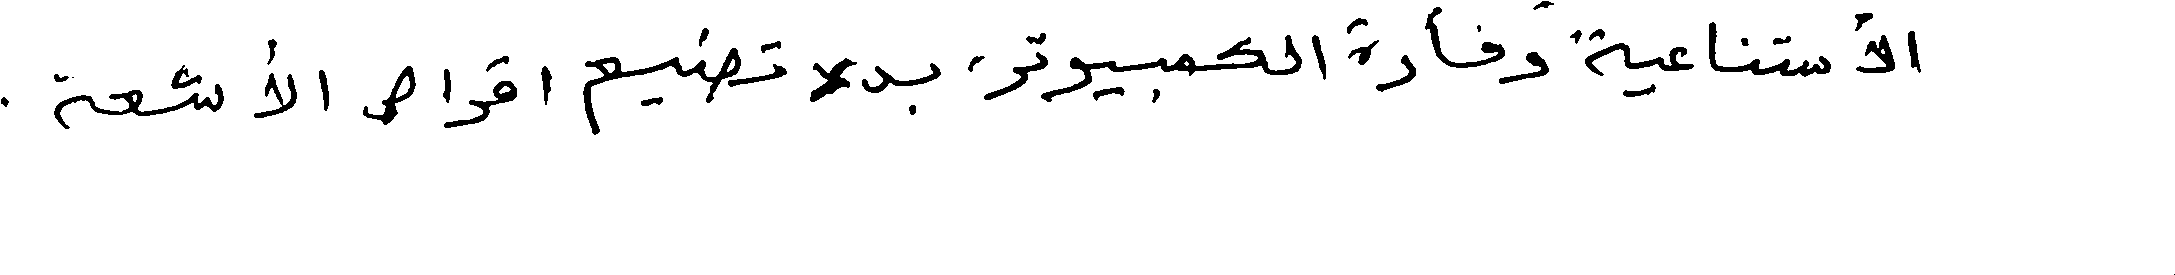 الأستناعية، وفأرة الكمبيوتر، بدلا تصنيع اقراص الأشعة .